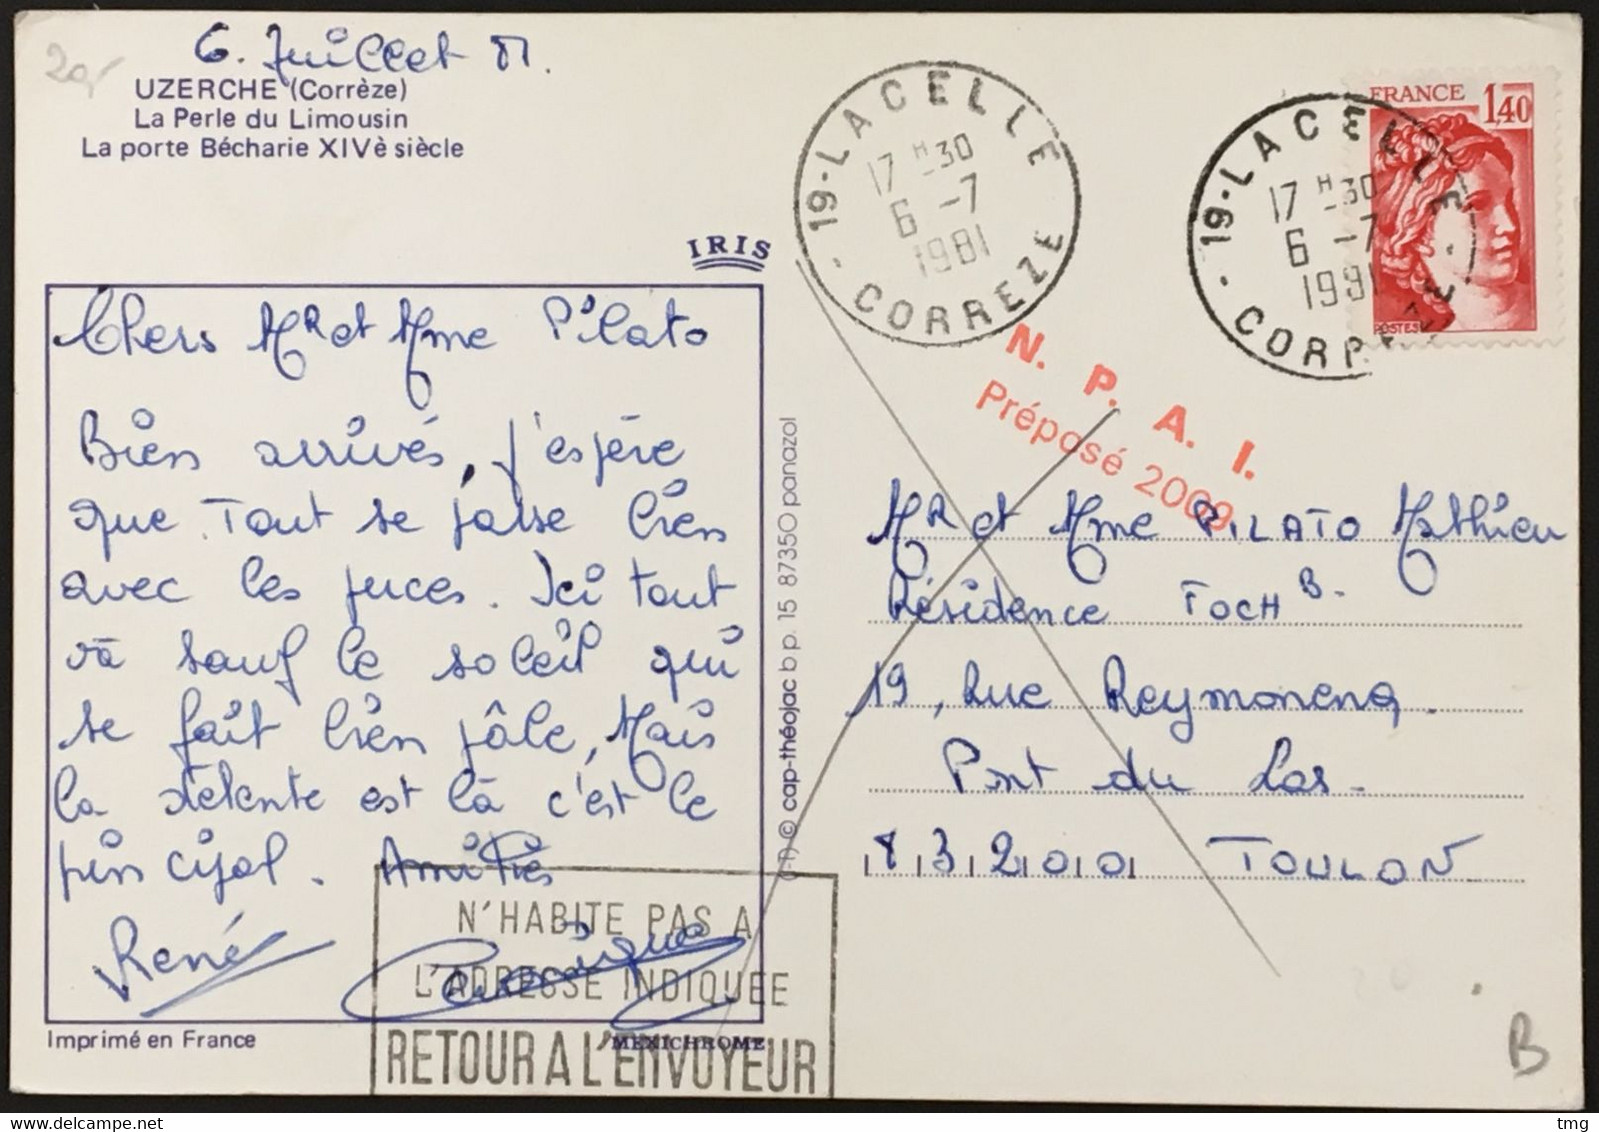 6. Juillet 81.
UZERCHE (Corrèze)
La Perle du Limousin
La porte Bécharie XIVè siècle
IRIS
Chers Mr et Mme Pilato
Bien arrivés, j'espère
que. Tout se passe bien
avec les puces. Ici tout
va sauf le soleil qui
se fait bien pâle, Mais
la détente est là c'est le
principal. Amitiés
René
Imprimé en France
MEXICHROME
(-1-) © cap-théojac b p. 15 87350 panazol
19 - LACELLE - CORREZE
17 H -30
6 -7
1981
19 - LACELLE - CORREZE
17 H -30
6 -7
1981
FRANCE 1,40
POSTES
N. P. A. I.
Préposé 2009
Mr et Mme PILATO Mathieu
Résidence FOCH B.
19, Rue Reymoneng.
Pont du Las.
83200 TOULON
N'HABITE PAS A
L'ADRESSE INDIQUÉE
RETOUR A L'ENVOYEUR
B
tmg